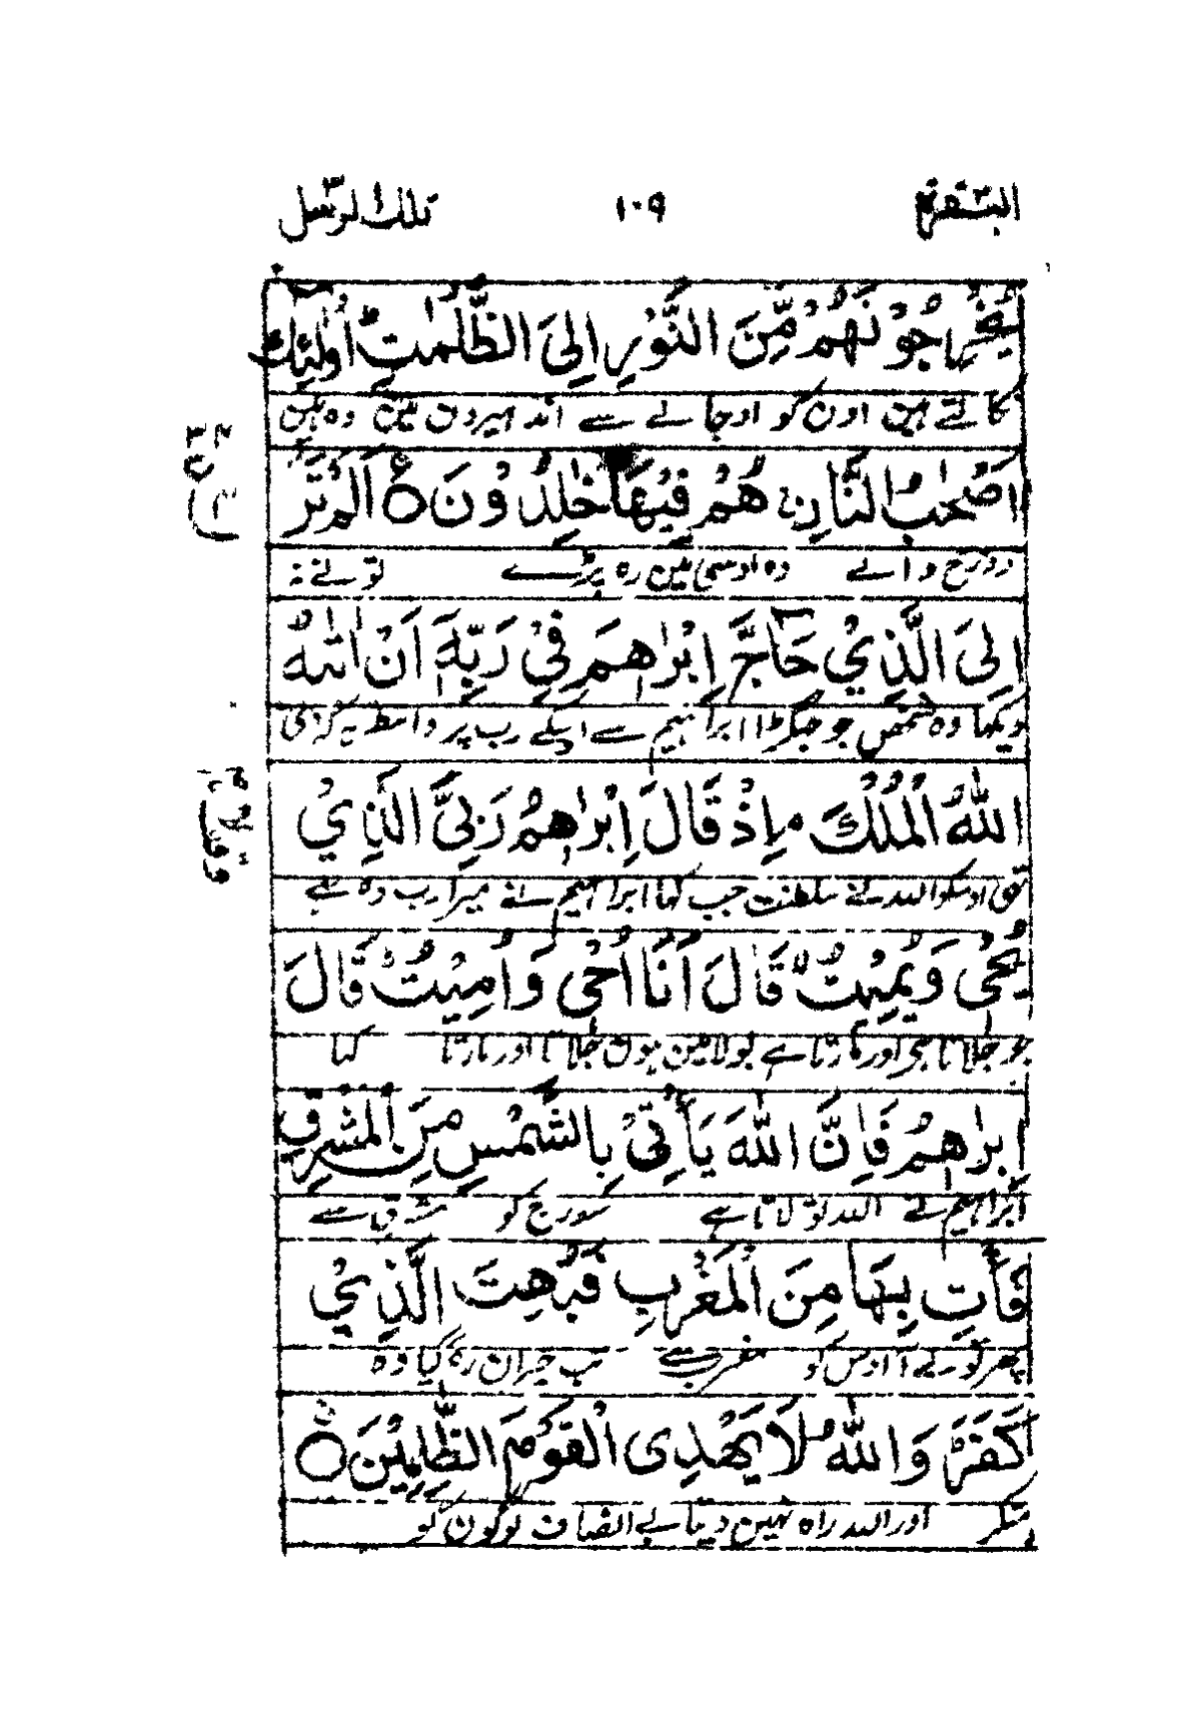 البقرة ۲ ۱۰۹ تلك الرسل ۳
يُخْرِجُوْنَهُمْ مِّنَ النُّوْرِ اِلَى الظُّلُمٰتِ ؕ اُولٰٓئِكَ
نكالتے ہین اون كو اوجالے سے اندهیرون مین وه ہین
اَصْحٰبُ النَّارِ ۚ هُمْ فِيْهَا خٰلِدُوْنَ ۝ اَلَمْ تَرَ
دوزخ والے وه اوسی مین ره پڑے تو نے نہ
اِلَى الَّذِيْ حَآجَّ اِبْرٰهٖمَ فِيْ رَبِّهٖٓ اَنْ اٰتٰىهُ
دیکها وه شخص جو جهگڑا ابراہیم سے اسکے رب پر واسطے یہ کہ دی
اللّٰهُ الْمُلْكَ ۘ اِذْ قَالَ اِبْرٰهٖمُ رَبِّيَ الَّذِيْ
تهی اوسکو الله نے سلطنت جب کہا ابراہیم نے میرا رب وه ہے
يُحْيٖ وَيُمِيْتُ ۙ قَالَ اَنَا اُحْيٖ وَاُمِيْتُ ؕ قَالَ
جو جلاتا ہے اور مارتا ہے بولا مین ہون جلاتا اور مارتا کہا
اِبْرٰهٖمُ فَاِنَّ اللّٰهَ يَاْتِيْ بِالشَّمْسِ مِنَ الْمَشْرِقِ
ابراہیم نے الله تو لاتا ہے سورج کو مشرق سے
فَاْتِ بِهَا مِنَ الْمَغْرِبِ فَبُهِتَ الَّذِيْ
پهر تو لے آ اوس کو مغرب سے تب حیران ره گیا وه
كَفَرَ ؕ وَاللّٰهُ لَا يَهْدِى الْقَوْمَ الظّٰلِمِيْنَ ۝
منکر اور الله راه نہین دیتا بے انصاف لوگون کو